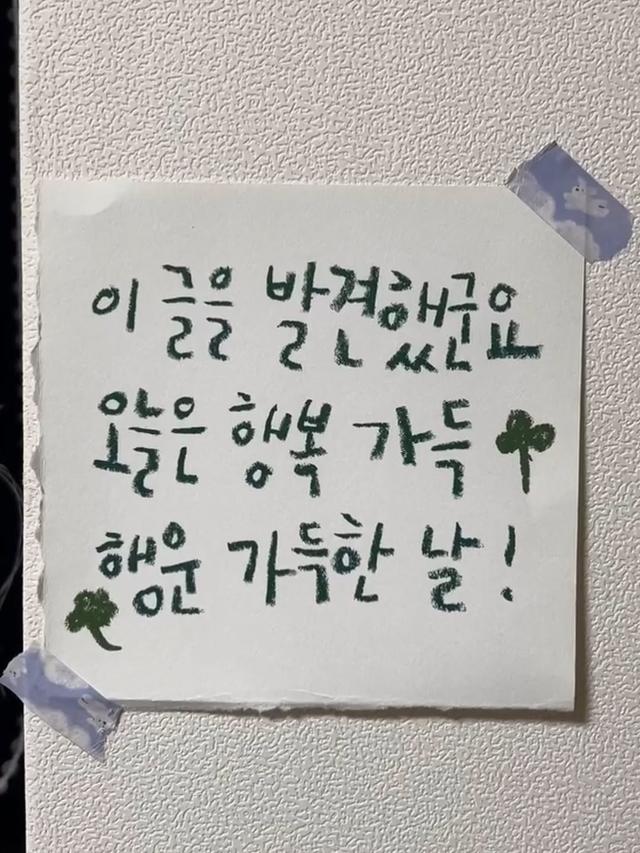 이 글을 발견했군요
오늘은 행복 가득
행운 가득한 날!